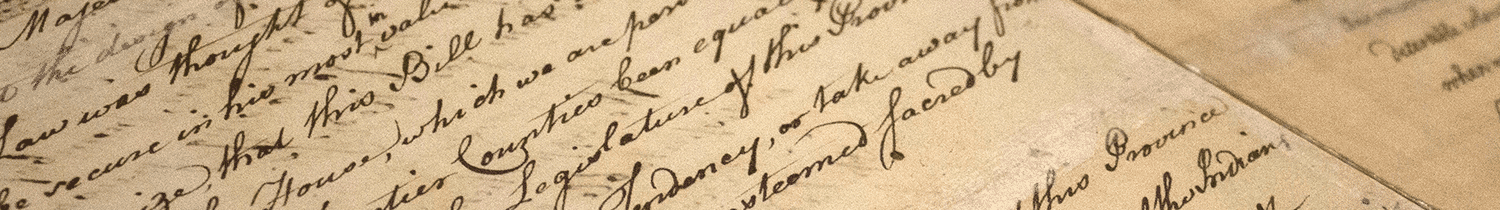 Majes
to the design of
Law was thought
be secure in his most valu
in
ize, that this Bill has
House, which we are pers
ntier Counties been equal
Legislature of this Provin
Tendency, or take away from
esteemed sacred by
this Province
the Indians
when